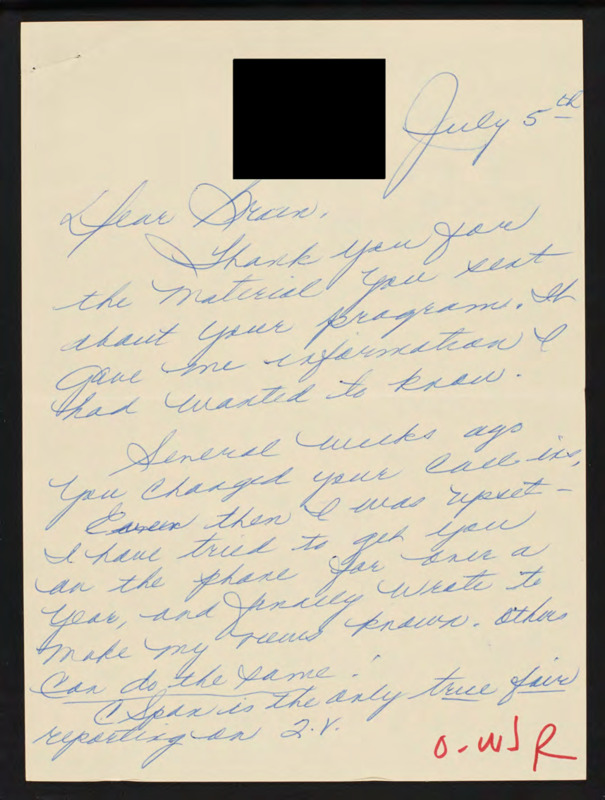 July 5th
Dear Brian,
Thank you for
the material you sent
about your program. It
gave me information I
had wanted to know.
Several weeks ago
you changed your call-ins,
Even then I was upset-
I have tried to get you
on the phone for over a
year, and finally wrote to
make my views known. Others
can do the same!
C Span is the only true fair
reporting on T.V.
O-WJR